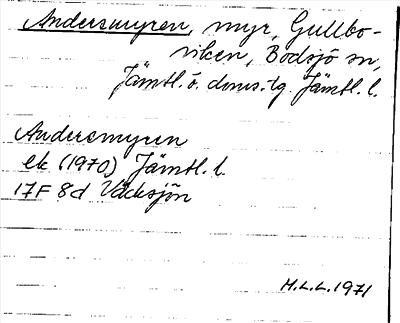 Andersmyren, myr, Gullbo-
viken, Bodsjö sn,
Jämtl. ö. doms.-lg. Jämtl. l.
Andersmyren
ek (1970) Jämtl. l.
17F 8d Väcksjön
H.L.L. 1971